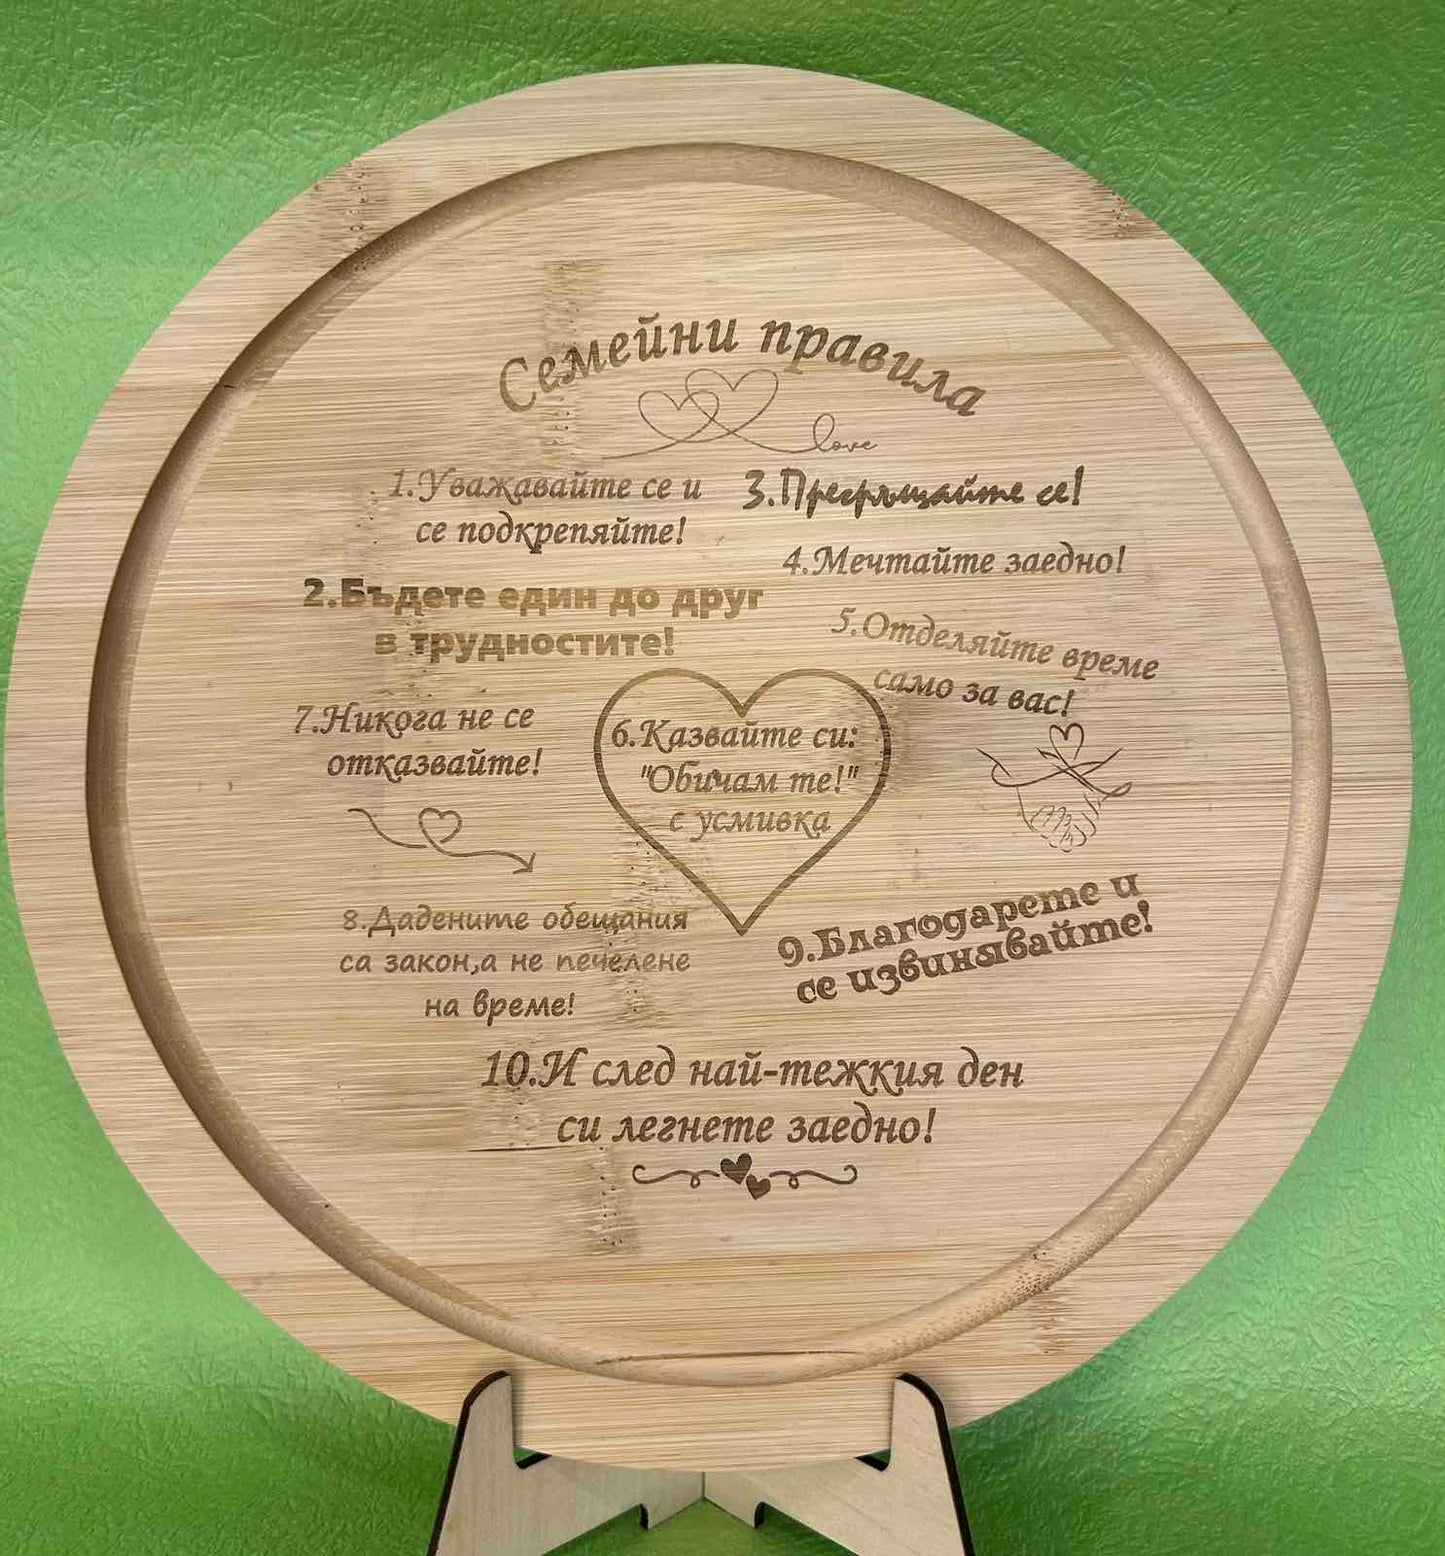 Семейни правила
love
1.Уважавайте се и
се подкрепяйте!
2.Бъдете един до друг
в трудностите!
3.Прегръщайте се!
4.Мечтайте заедно!
5.Отделяйте време
само за вас!
6.Казвайте си:
"Обичам те!"
с усмивка
7.Никога не се
отказвайте!
8.Дадените обещания
са закон,а не печелене
на време!
9.Благодарете и
се извинявайте!
10.И след най-тежкия ден
си легнете заедно!